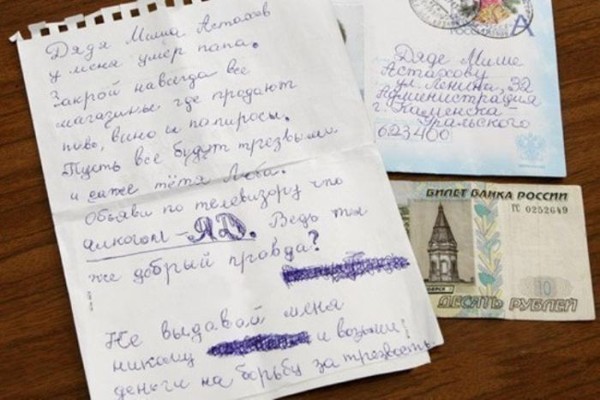 Дядя Миша Астахов
у меня умер папа.
Закрой навсегда все
магазины где продают
пово, вино и папиросы.
Пусть все будут трезвыми
и даже тётя Люба.
Объяви по телевизору что
алкоголь-ЯД. Ведь ты
же добрый правда?
Не выдавай меня
никому и возьми!
деньги на борьбу за трезвость
Дяде Мише
Астахову
ул. Ленина, 32
Администрация
г. Каменска-
Уральского
623400
А
БИЛЕТ БАНКА РОССИИ
ГС 0252649
10
ДЕСЯТЬ РУБЛЕЙ